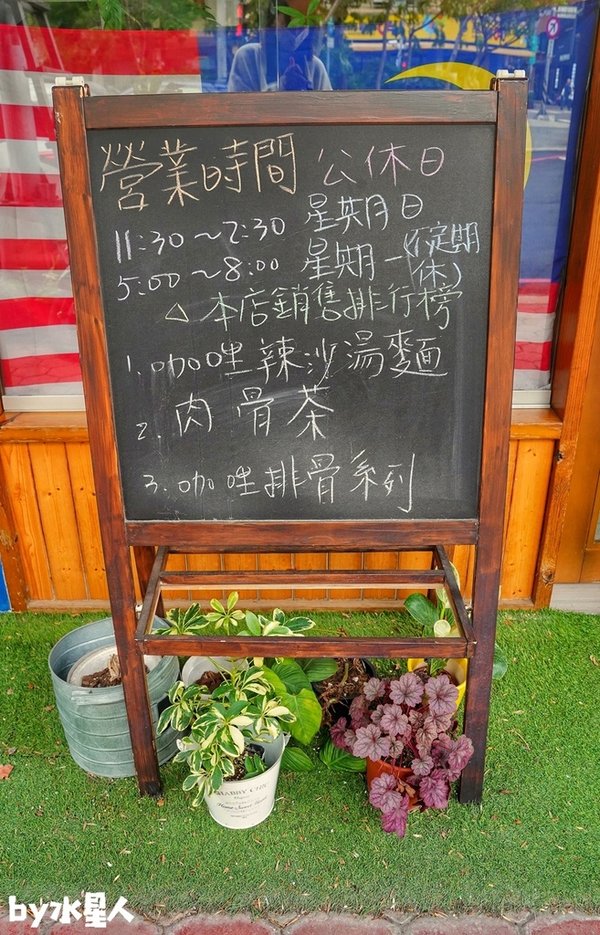 營業時間 公休日
11:30～2:30 星期日
5:00～8:00 星期一(不定期休)
△本店銷售排行榜
1.咖哇辣沙湯麵
2.肉骨茶
3.咖哇排骨系列
SHABBY CHIC
Home Sweet Home
by水星人